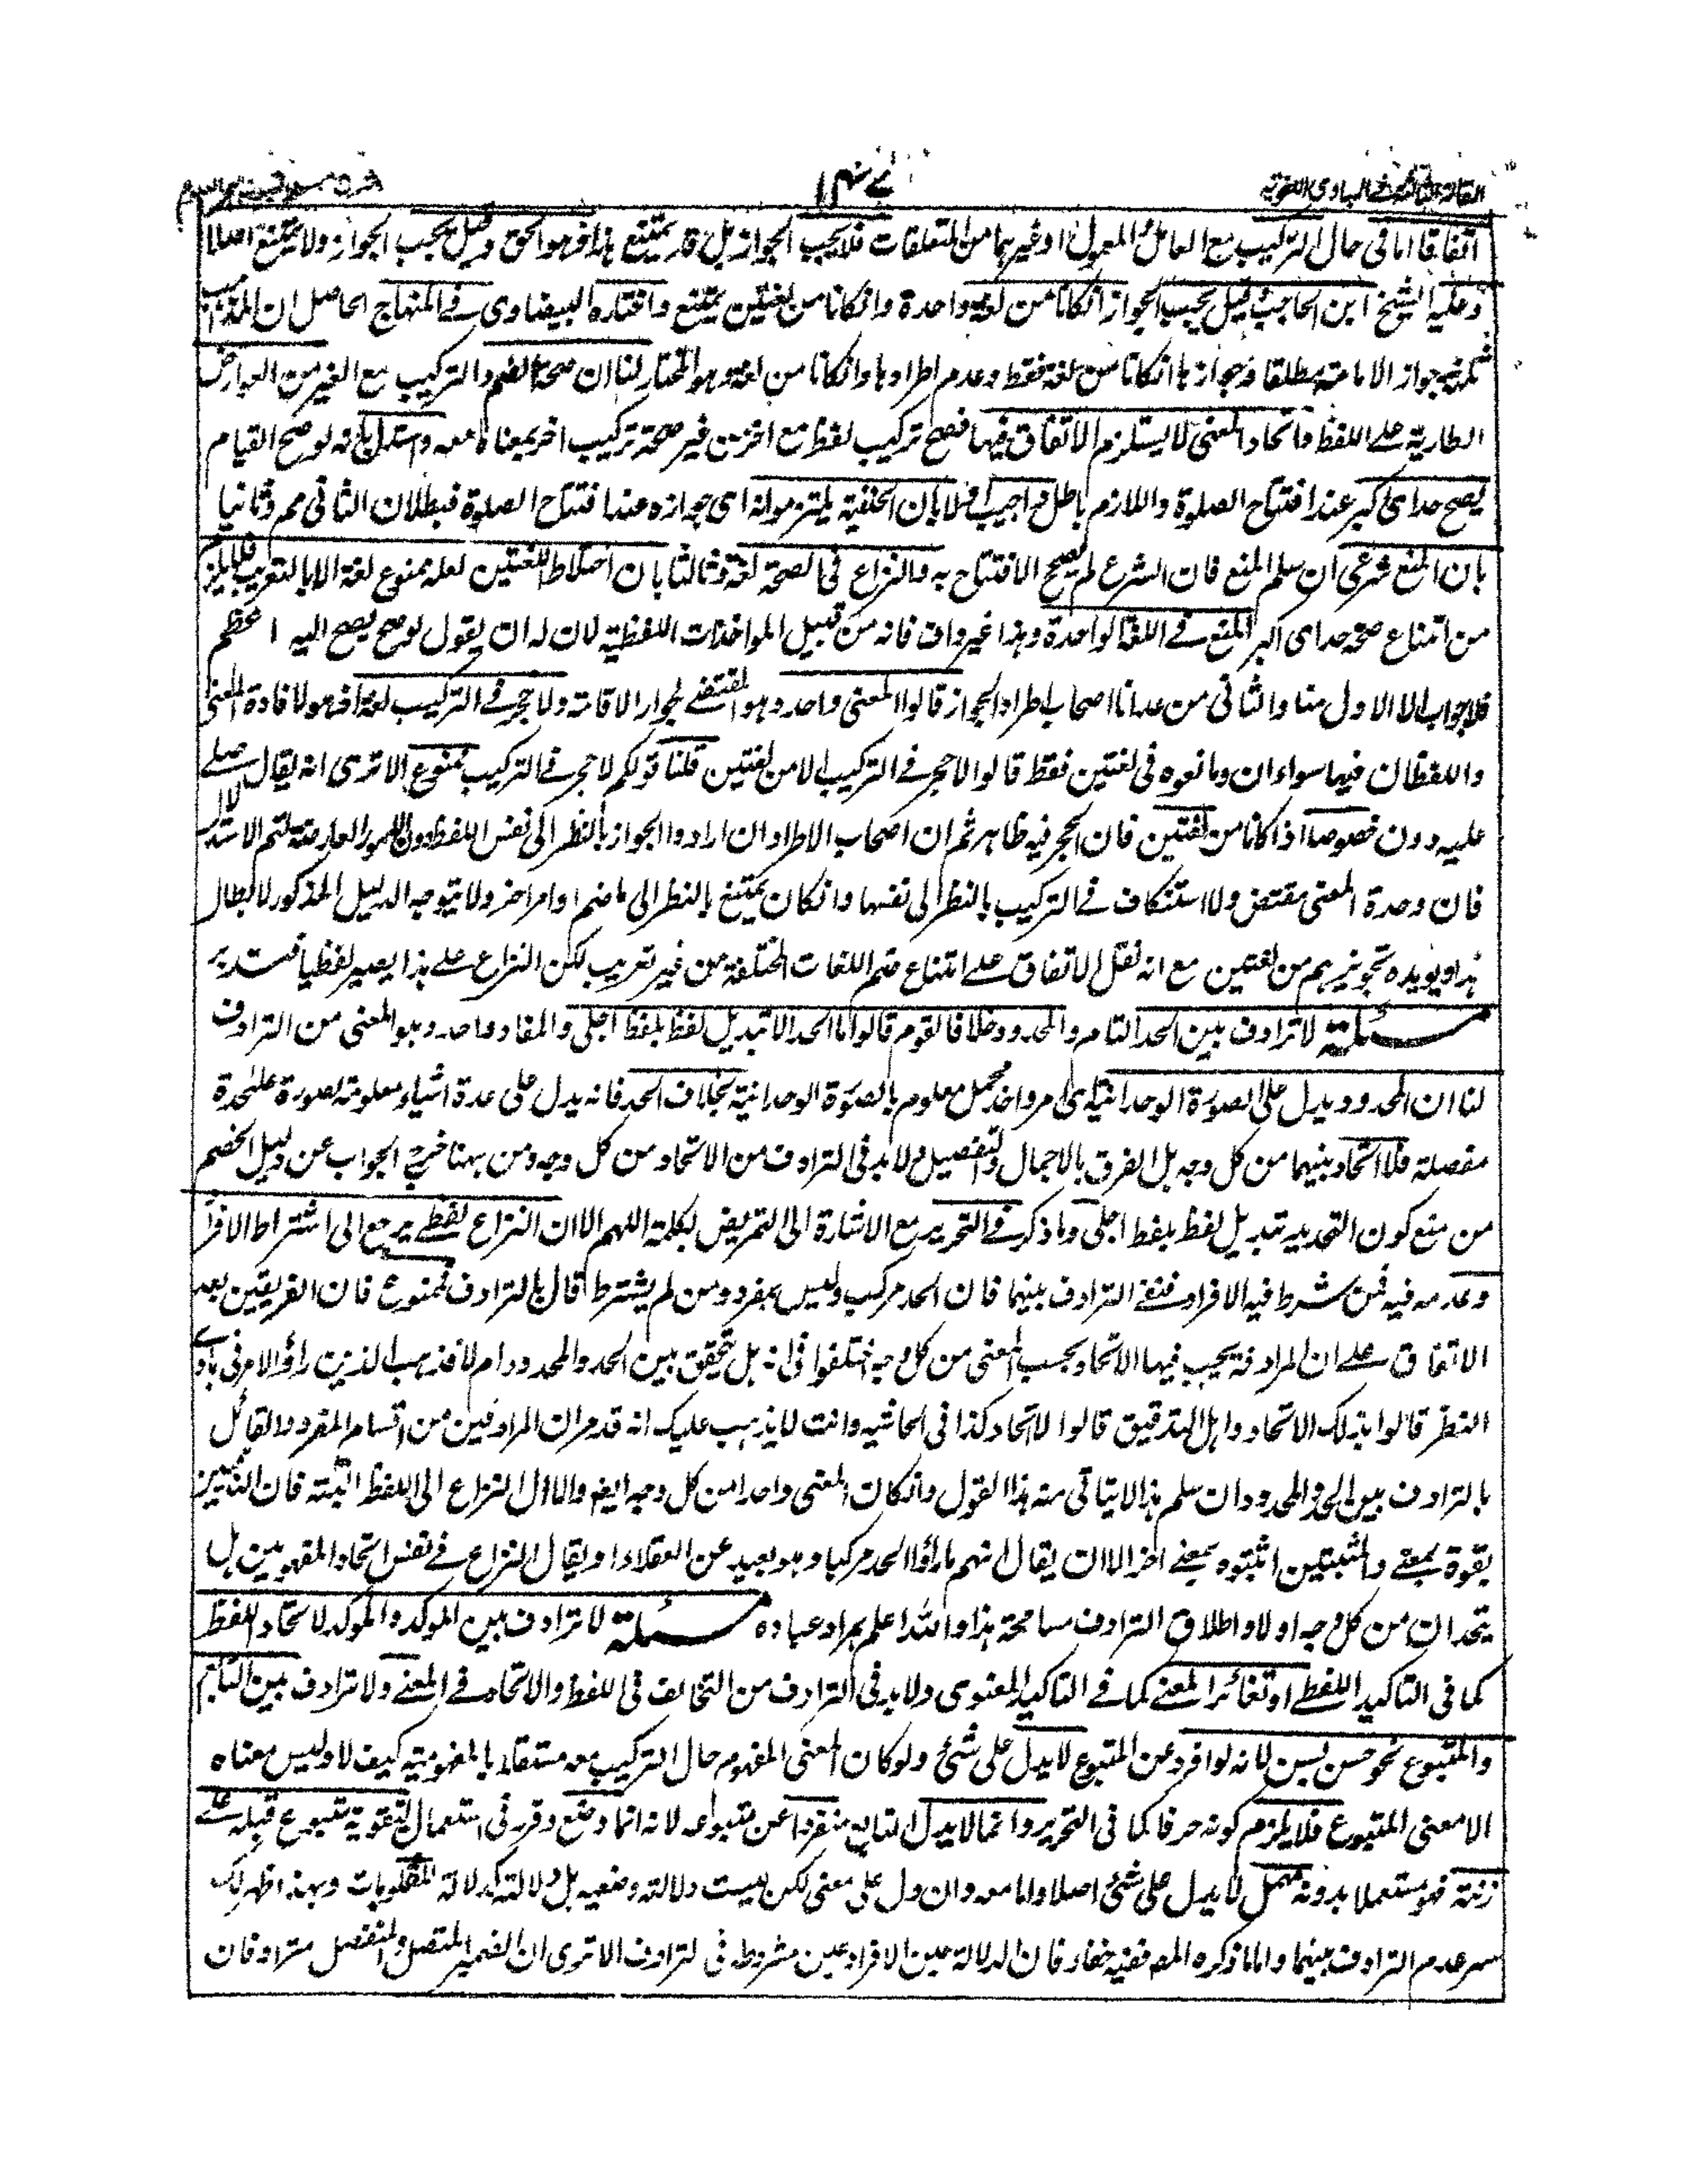 المقالة الثالثة في المبادي اللغوية
اتفاقا اما في حال التركيب مع العامل او المعمول او غيرهما من المتعلقات فلا يجب الجواز بل قد يمتنع هذا هو الحق وقيل يجب الجواز ولا يمتنع اصلا
وعليه الشيخ ابن الحاجب وقيل يجب الجواز انكانا من لغة واحدة وانكانا من لغتين يمتنع واختاره البيضاوي في المنهاج الحاصل ان المذاهب
ثلثة جواز الاقامة مطلقا وجوازها انكانا من لغة فقط وعدم اطرادها وانكانا من لغة وهو المختار لنا ان صحة الضم والتركيب مع الغير من العوارض
الطارية على اللفظ واتحاد المعنى لا يستلزم الاتفاق فيها فصح تركيب لفظ مع اخر من غير صحة تركيب اخر بمعناه معه واستدل بانه لو صح القيام
يصح خداى اكبر عند افتتاح الصلوة واللازم باطل واجيب اولا بان الحنفية يلتزمونه اى جوازه عند افتتاح الصلوة فبطلان الثاني مم وثانيا
بان المنع شرعى ان سلم المنع فان الشرع لم يصح الافتتاح به والنزاع في الصحة لغة وثالثا بان اختلاط اللغتين لعله ممنوع لغة الا بالتعريب فلا يلزم
من امتناع صحة خداى اكبر المنع في اللغة الواحدة وهذا غير واف فانه من قبيل المواخذات اللفظية لان له ان يقول لو صح يصح الله اعظم
فلا جواب الا الاول منا والثاني من عدانا اصحاب اطراد الجواز قالوا المعنى واحد وهو المقتضى لجواز الاقامة ولا حجر في التركيب لغة اذ هو لافادة المعنى
واللفظان فيها سواء ان ومانعوه في لغتين فقط قالوا لا حجر في التركيب الا من لغتين قلنا قولكم لا حجر في التركيب ممنوع الا ترى انه يقال صلى
عليه دون خصوصا اذا كانا من لغتين فان الحجر فيه ظاهر ثم ان اصحاب الاطراد ان ارادوا الجواز بالنظر الى نفس اللفظ دون الامور العارضة لتم الاستدلال
فان وحدة المعنى مقتض ولا استنكاف في التركيب بالنظر الى نفسها وانكان يمتنع بالنظر الى ما ضم او امر اخر ولا يتوجه الدليل المذكور لابطال
هذا ويويده تجويزهم من لغتين مع انه نقل الاتفاق على امتناع ضم اللغات المختلفة من غير تعريب لكن النزاع على هذا يصير لفظيا فتدبر
مسئلة لا ترادف بين الحد التام والمحدود خلافا لقوم قالوا ما الحد الا تبديل لفظ بلفظ اجلى والمفاد واحد وهو المعنى من الترادف
لنا ان المحدود يدل على الصورة الوحدانية اى امر واحد مجمل معلوم بالصورة الوحدانية بخلاف الحد فانه يدل على عدة اشياء معلومة بصورة علىحدة
مفصلة فلا اتحاد بينهما من كل وجه بل الفرق بالاجمال والتفصيل ولا بد في الترادف من الاتحاد من كل وجه ومن ههنا خرج الجواب عن دليل الخصم
من منع كون التحديد تبديل لفظ بلفظ اجلى وما ذكر في التحرير مع الاشارة الى التمريض بكلمة اللهم الا ان النزاع لفظى يرجع الى اشتراط الافراد
وعدمه فيه فمن شرط فيه الافراد فنفى الترادف بينهما فان الحد مركب وليس بمفرد ومن لم يشترط قال بالترادف فممنوع فان الفريقين بعد
الاتفاق على ان المرادفة يجب فيها الاتحاد بحسب المعنى من كل وجه اختلفوا في انه هل تحقق بين الحد والمحدود ام لا فذهب الذين راؤا الامر في بادى
النظر قالوا بذلك الاتحاد واهل التدقيق قالوا لا اتحاد كذا في الحاشيه وانت لا يذهب عليك انه قد مر ان المرادفين من اقسام المفرد والقائل
بالترادف بين الحد والمحدود ان سلم هذا لا يتاتى منه هذا القول وانكان المعنى واحدا من كل وجه ايضا والا آل النزاع الى اللفظ البتة فان النافين
بقوة بمعنى والمثبتين اثبتوه بمعنى اخر الا ان يقال انهم ما راؤا الحد مركبا وهو بعيد عن العقلاء او يقال النزاع في نفس اتحاد المفهومين هل
يتحدان من كل وجه او لا واطلاق الترادف مسامحة هذا والله اعلم بمراد عباده مسئلة لا ترادف بين الموكد والموكد لاتحاد اللفظ
كما في التاكيد اللفظى او تغائر المعنى كما في التاكيد المعنوى ولا بد في الترادف من التخالف في اللفظ والاتحاد في المعنى ولا ترادف بين التابع
والمتبوع نحو حسن بسن لانه لو افرد عن المتبوع لا يدل على شئ ولو كان المعنى المفهوم حال التركيب معه مستقلا بالمفهومية كيف لا وليس معناه
الا معنى المتبوع فلا يلزم كونه حرفا كما في التحرير وانما لا يدل التابع منفردا عن متبوعه لانه انما وضع وقرر في استعمال لتقوية متبوع قبله على
زنة فهو مستعملا بدونه مهمل لا يدل على شئ اصلا واما معه وان دل على معنى لكن ليست دلالته وضعيه بل دلالته كدلالة المقلوبات وبهذا ظهر لك
سر عدم الترادف بينهما واما ما ذكره المصـ ففيه خفاء فان الدلالة حين الافراد عين مشروط في الترادف الا ترى ان الضمير المتصل والمنفصل مترادفان